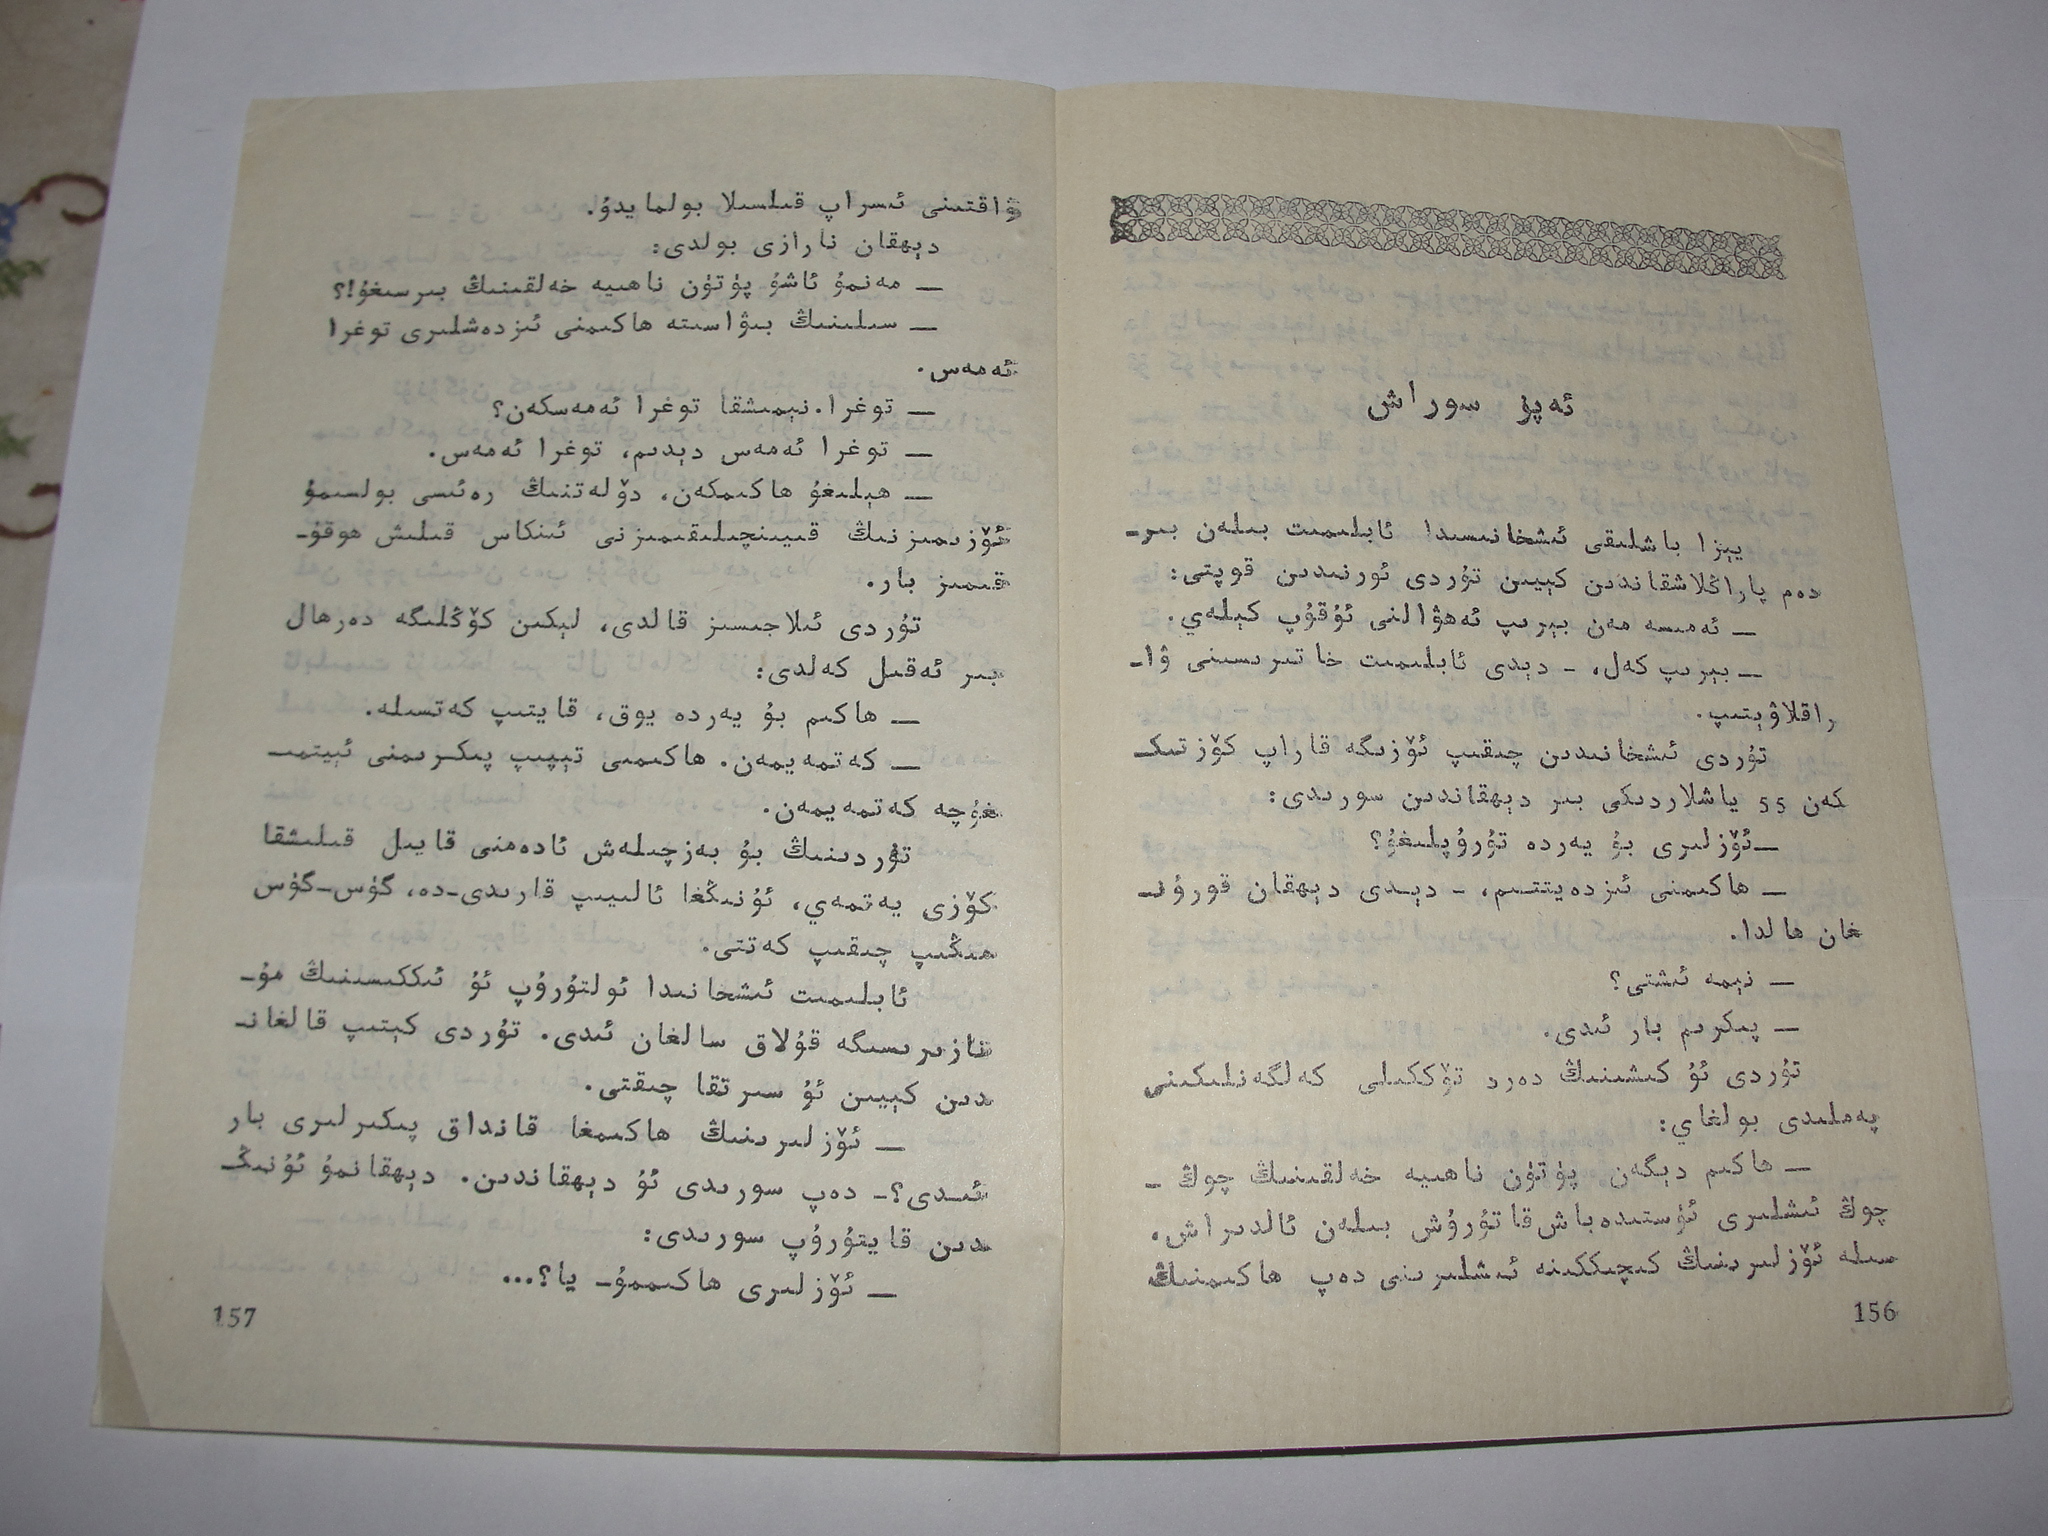 ئەپۇ سوراش
يېزا باشلىقى ئىشخانىسىدا ئابلىمىت بىلەن بىر-
دەم پاراڭلاشقاندىن كېيىن تۇردى ئورنىدىن قوپتى:
— ئەمىسە مەن بېرىپ ئەھۋالنى ئۇقۇپ كېلەي.
— بېرىپ كەل، - دېدى ئابلىمىت خاتىرىسىنى ۋا-
راقلاۋېتىپ.
تۇردى ئىشخانىدىن چىقىپ ئۆزىگە قاراپ كۆزتىك-
كەن 55 ياشلاردىكى بىر دېھقاندىن سورىدى:
— ئۆزلىرى بۇ يەردە تۇرۇپلىغۇ؟
— ھاكىمنى ئىزدەيتتىم، - دېدى دېھقان قورۇن-
غان ھالدا.
— نېمە ئىشتى؟
— پىكرىم بار ئىدى.
تۇردى ئۇ كىشىنىڭ دەرد تۆككىلى كەلگەنلىكىنى
پەملىدى بولغاي:
— ھاكىم دېگەن پۈتۈن ناھىيە خەلقىنىڭ چوڭ -
چوڭ ئىشلىرى ئۈستىدە باش قاتۇرۇش بىلەن ئالدىراش،
سىلە ئۆزلىرىنىڭ كىچىككىنە ئىشلىرىنى دەپ ھاكىمنىڭ
156
ۋاقتىنى ئىسراپ قىلسىلا بولمايدۇ.
دېھقان نارازى بولدى:
— مەنمۇ ئاشۇ پۈتۈن ناھىيە خەلقىنىڭ بىرسىغۇ!؟
— سىلىنىڭ بىۋاسىتە ھاكىمنى ئىزدەشلىرى توغرا
ئەمەس.
— توغرا. نېمىشقا توغرا ئەمەسكەن؟
— توغرا ئەمەس دېدىم، توغرا ئەمەس.
— ھېلىغۇ ھاكىمكەن، دۆلەتنىڭ رەئىسى بولسىمۇ
ئۆزىمىزنىڭ قىيىنچىلىقىمىزنى ئىنكاس قىلىش ھوقۇ-
قىمىز بار.
تۇردى ئىلاجىسىز قالدى، لېكىن كۆڭلىگە دەرھال
بىر ئەقىل كەلدى:
— ھاكىم بۇ يەردە يوق، قايتىپ كەتسىلە.
— كەتمەيمەن. ھاكىمنى تېپىپ پىكىرىمنى ئېيتمى-
غۇچە كەتمەيمەن.
تۇردىنىڭ بۇ بەزچىلەش ئادەمنى قايىل قىلىشقا
كۆزى يەتمەي، ئۇنىڭغا ئالىيىپ قارىدى-دە، گۈس-گۈس
مىڭىپ چىقىپ كەتتى.
ئابلىمىت ئىشخانىدا ئولتۇرۇپ ئۇ ئىككىسىنىڭ مۇ-
نازىرىسىگە قۇلاق سالغان ئىدى. تۇردى كېتىپ قالغان-
دىن كېيىن ئۇ سىرتقا چىقتى.
— ئۆزلىرىنىڭ ھاكىمغا قانداق پىكىرلىرى بار
ئىدى؟ - دەپ سورىدى ئۇ دېھقاندىن. دېھقانمۇ ئۇنىڭ-
دىن قايتۇرۇپ سورىدى:
— ئۆزلىرى ھاكىممۇ- يا؟...
157